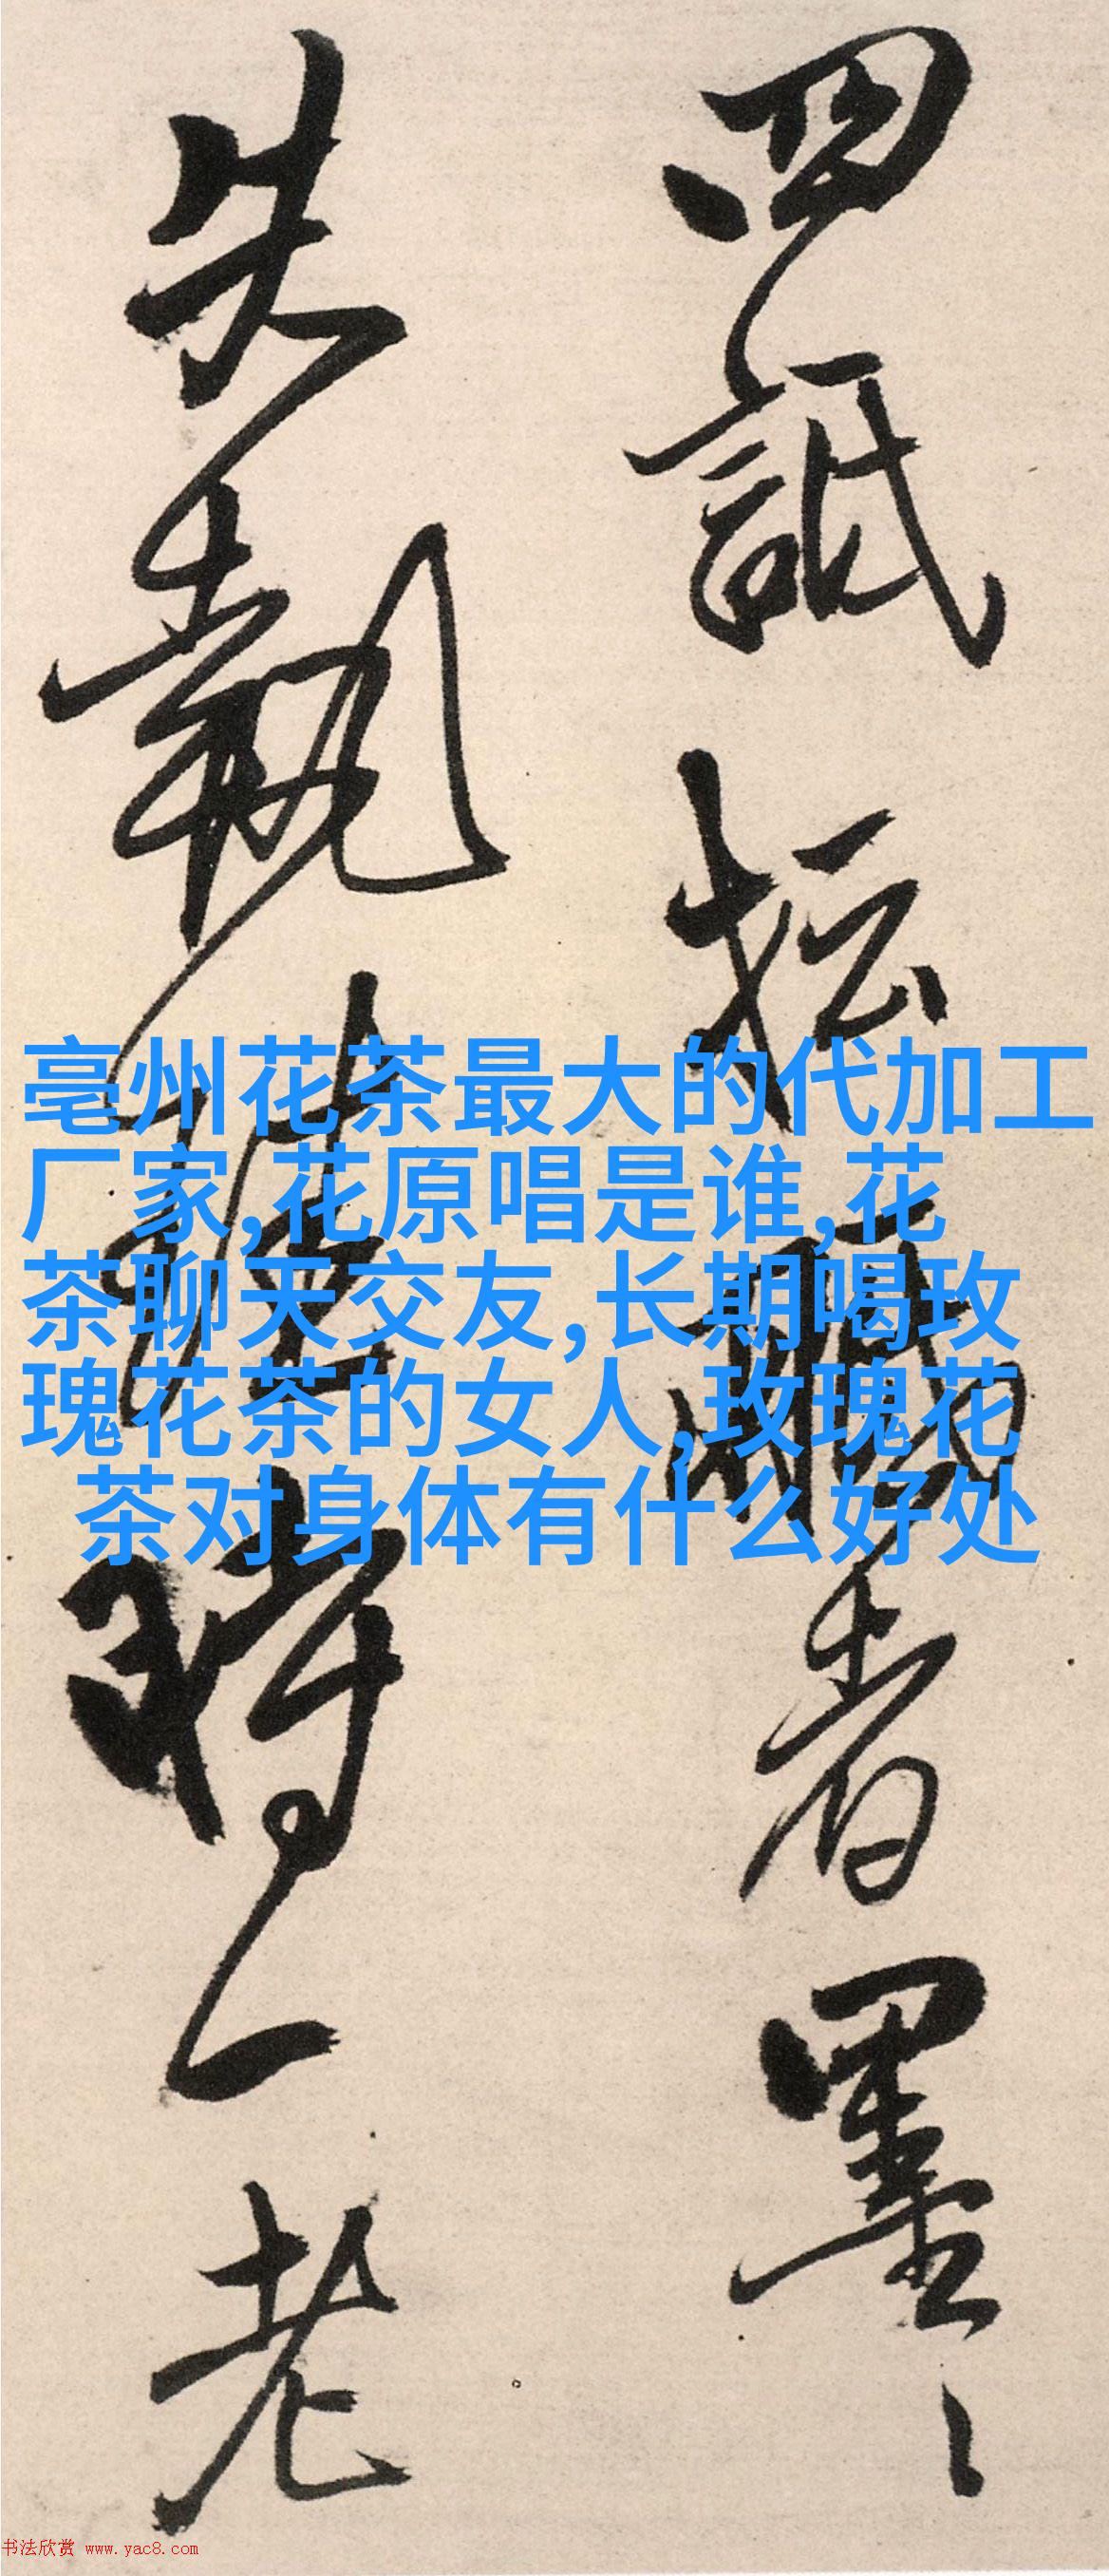 四詆坛
者墨
失執
時一老
亳州花茶最大的代加工
厂家,花原唱是谁,花
茶聊天交友,长期喝玫
瑰花茶的女人,玫瑰花
茶对身体有什么好处
书法欣赏 www.yac8.com